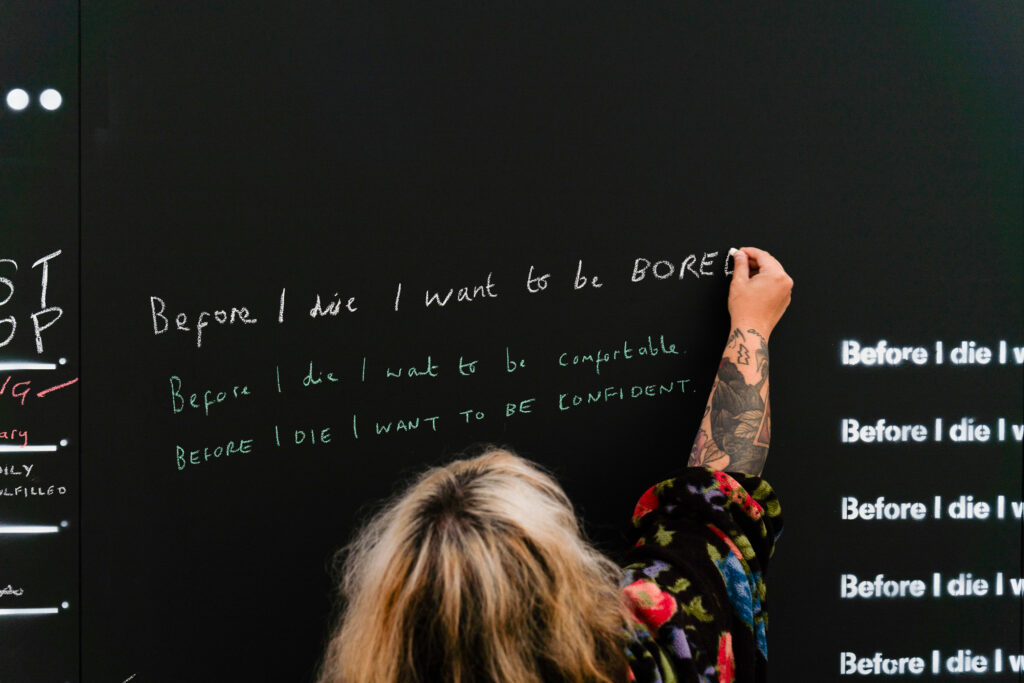 ST
OP
NG
ary
ILY
ULFILLED
Before I die I want to be BORED
Before I die I want to be comfortable.
BEFORE I DIE I WANT TO BE CONFIDENT.
Before I die I w
Before I die I w
Before I die I w
Before I die I w
Before I die I w